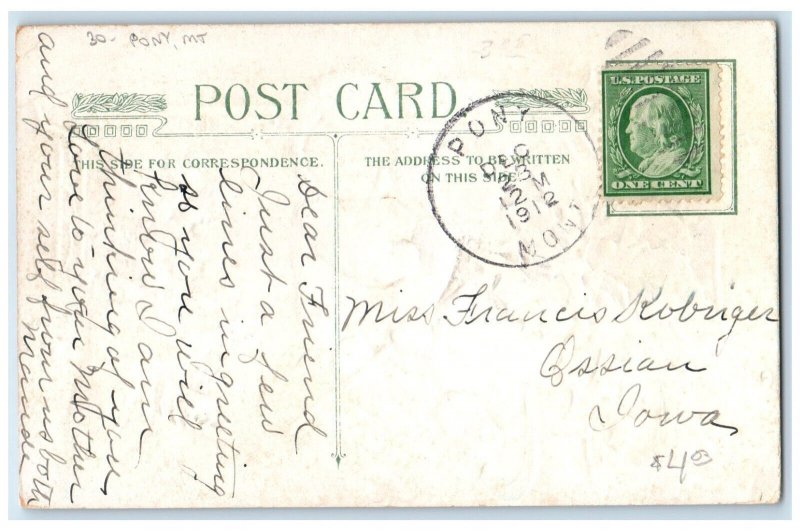 30- PONY, MT
POST CARD
THIS SIDE FOR CORRESPONDENCE.
THE ADDRESS TO BE WRITTEN
ON THIS SIDE
PONY
DEC
23
12 M
1912
MONT.
U.S. POSTAGE
ONE CENT
Dear Friend
Just a few
lines in greeting
so you will
know I am
thinking of you,
Love to your Mother
and your self from us both
Maude
Miss Francis Kobriger
Ossian
Iowa